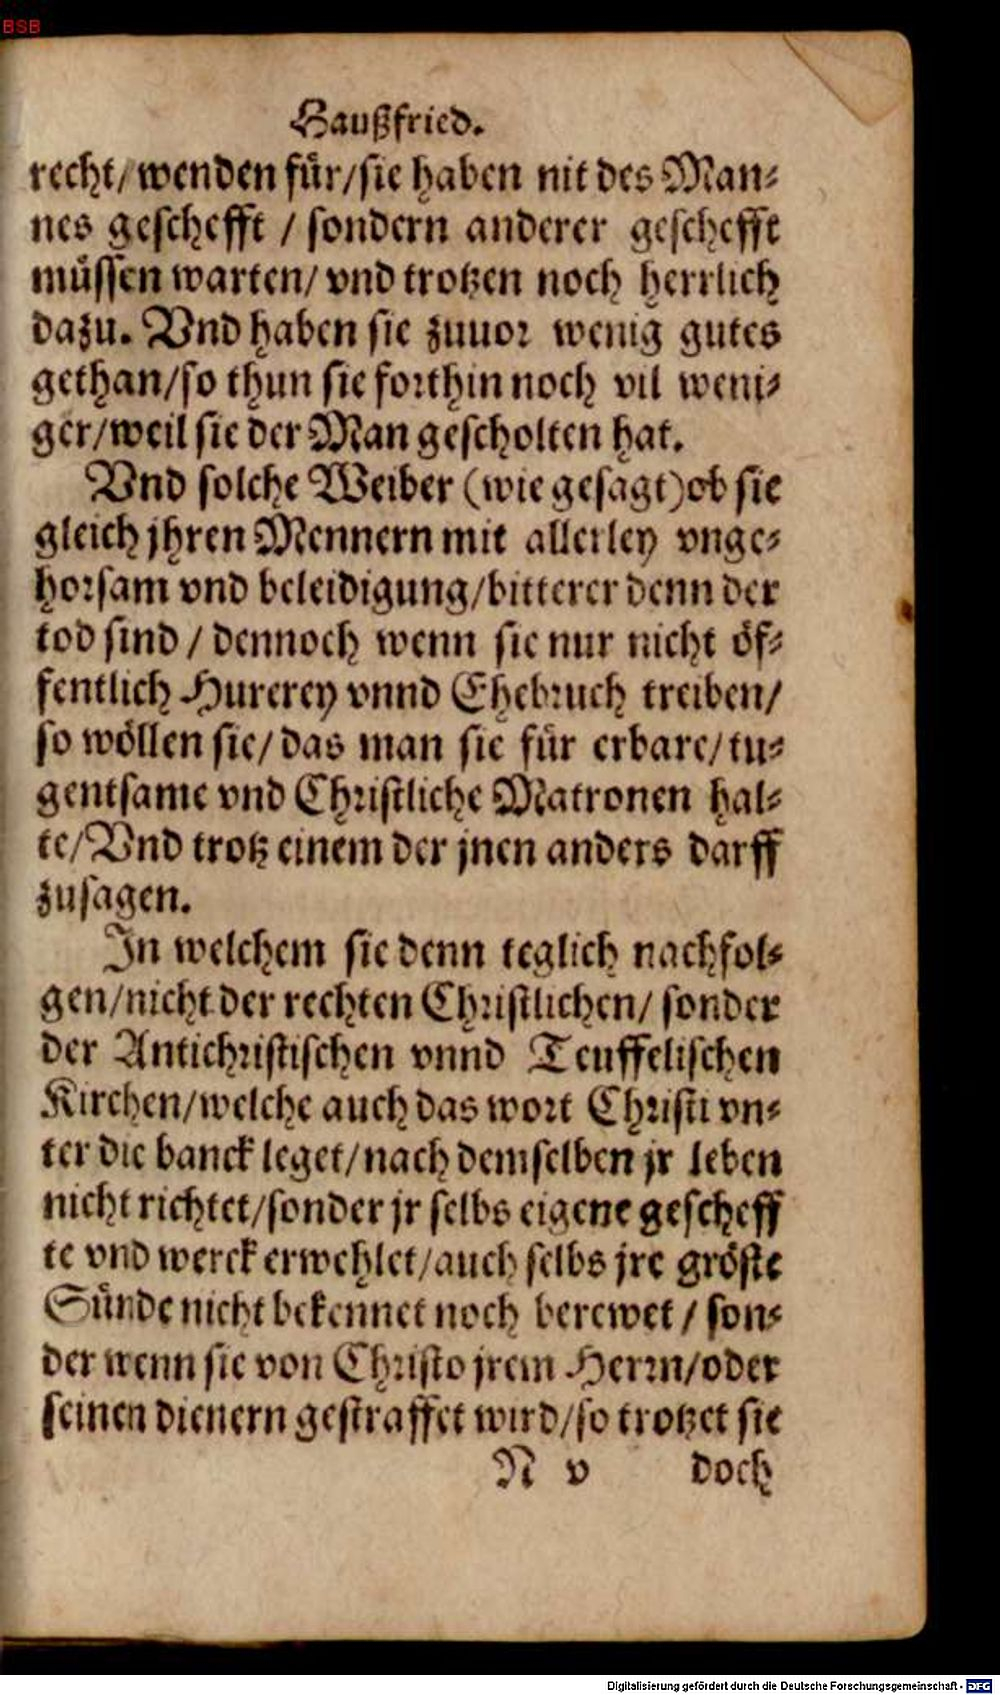 BSB
Haußfried.
recht/ wenden für/ sie haben nit des Man⸗
nes geschefft / sondern anderer geschefft
müssen warten/ vnd trotzen noch herrlich
dazu. Vnd haben sie zuuor wenig gutes
gethan/so thun sie forthin noch vil weni⸗
ger/weil sie der Man gescholten hat.
Vnd solche Weiber (wie gesagt) ob sie
gleich jhren Mennern mit allerley vnge⸗
horsam vnd beleidigung/bitterer denn der
tod sind / dennoch wenn sie nur nicht öf⸗
fentlich Hurerey vnnd Ehebruch treiben/
so wöllen sie/ das man sie für erbare/ tu⸗
gentsame vnd Christliche Matronen hal⸗
te/ Vnd trotz einem der jnen anders darff
zusagen.
In welchem sie denn teglich nachfol⸗
gen/nicht der rechten Christlichen/ sonder
der Antichristischen vnnd Teuffelischen
Kirchen/welche auch das wort Christi vn⸗
ter die banck leget/nach demselben jr leben
nicht richtet/sonder jr selbs eigene gescheff
te vnd werck erwehlet/auch selbs jre gröste
Sünde nicht bekennet noch berewet / son⸗
der wenn sie von Christo jrem Herrn/oder
seinen dienern gestraffet wird/so trotzet sie
N v doch
Digitalisierung gefördert durch die Deutsche Forschungsgemeinschaft - DFG